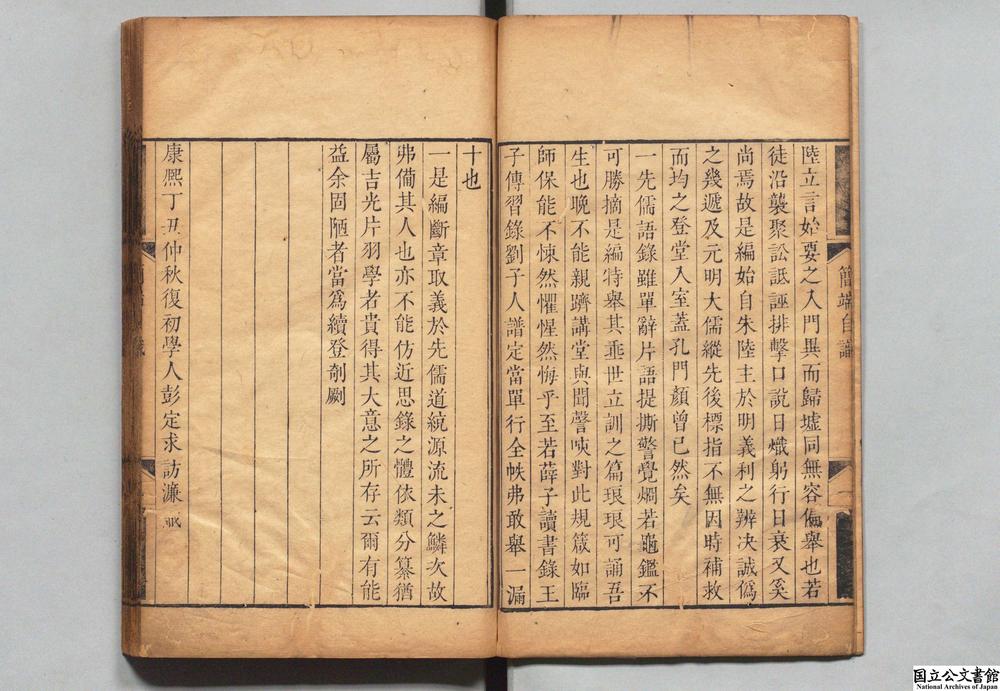 陸立言始要之入門異而歸墟同無容偏舉也若
徒沿襲聚訟詆誣排擊口說日熾躬行日衰又奚
尚焉故是編始自朱陸主於明義利之辨决誠僞
之幾遞及元明大儒縱先後標指不無因時補救
而均之登堂入室蓋孔門顏曾已然矣
一先儒語錄雖單辭片語提撕警覺爛若龜鑑不
可勝摘是編特舉其埀世立訓之篇琅琅可誦吾
生也晚不能親躋講堂與聞謦欬對此規箴如臨
師保能不悚然懼惺然悔乎至若薛子讀書錄王
子傳習錄劉子人譜定當單行全帙弗敢舉一漏
簡端自識
十也
一是編斷章取義於先儒道統源流未之鱗次故
弗備其人也亦不能仿近思錄之體依類分纂猶
屬吉光片羽學者貴得其大意之所存云爾有能
益余固陋者當爲續登剞劂
康熙丁丑仲秋復初學人彭定求訪濂
国立公文書館
National Archives of Japan